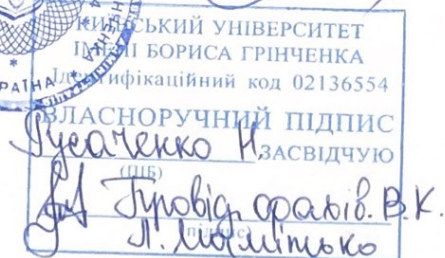 КИЇВСЬКИЙ УНІВЕРСИТЕТ
ІМЕНІ БОРИСА ГРІНЧЕНКА
Ідентифікаційний код 02136554
ВЛАСНОРУЧНИЙ ПІДПИС
Русаченко Н. ЗАСВІДЧУЮ
(ПІБ)
Провідн. фахів. В.К.
(підпис)
Л.
РАЇНА *